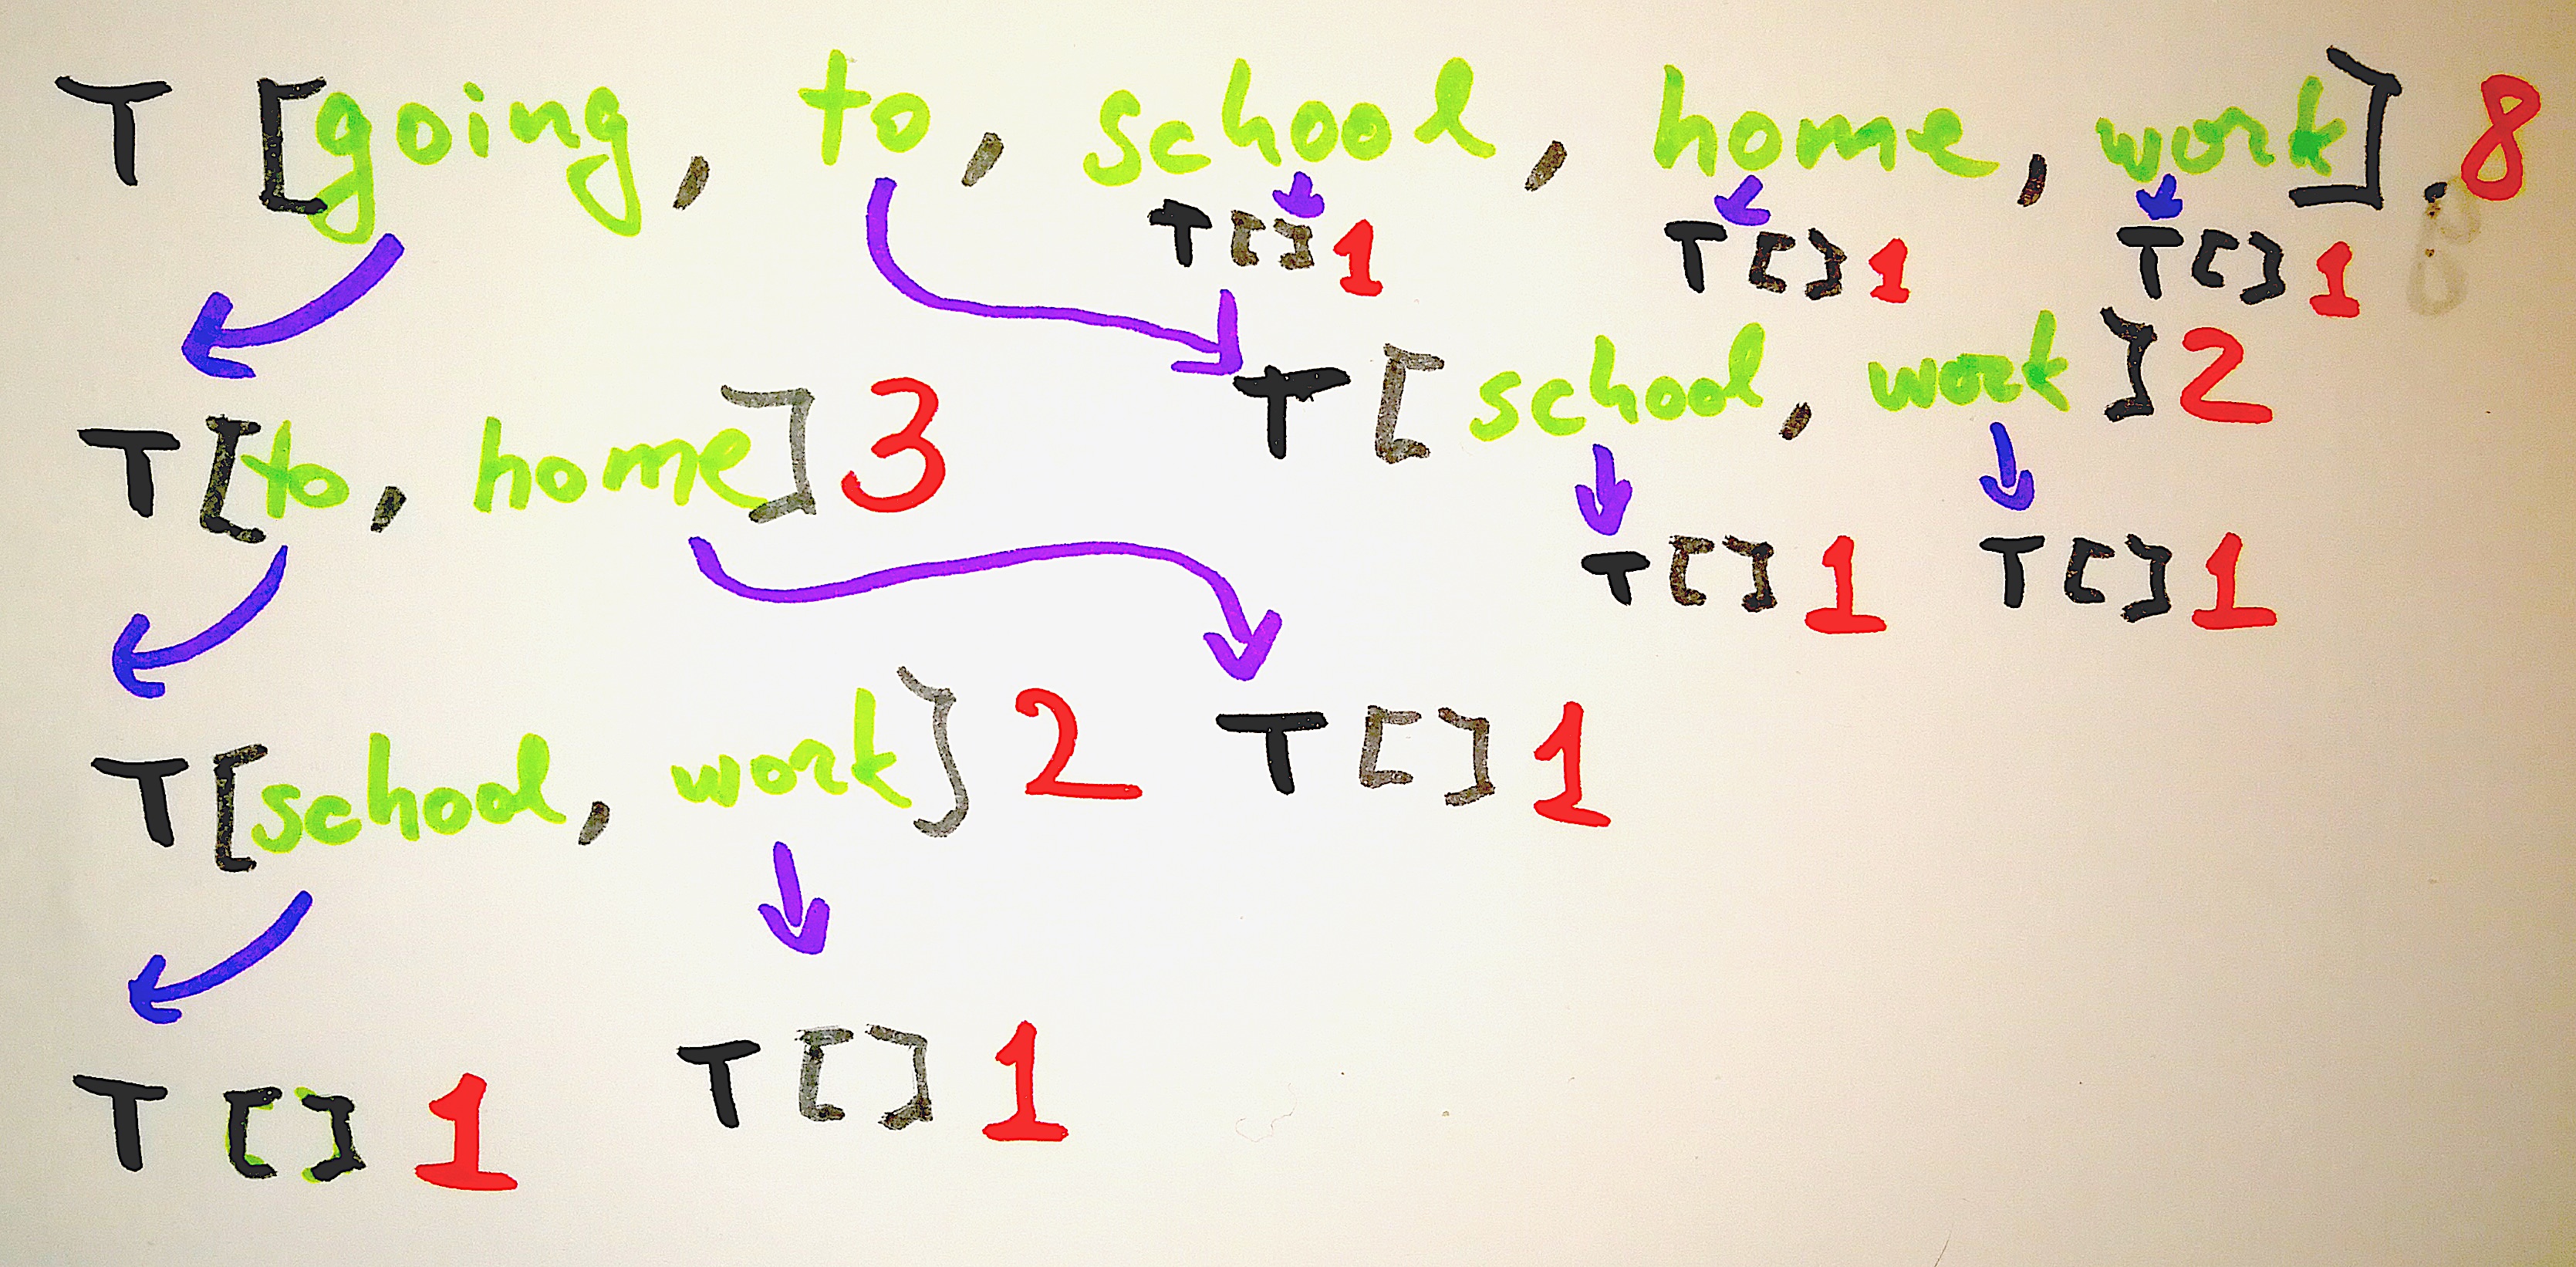 T [going, to, school, home, work]. 8
T[]1 T[]1 T[]1
T[school, work]2
T[to, home]3
T[]1 T[]1
T[school, work]2 T[]1
T[]1 T[]1